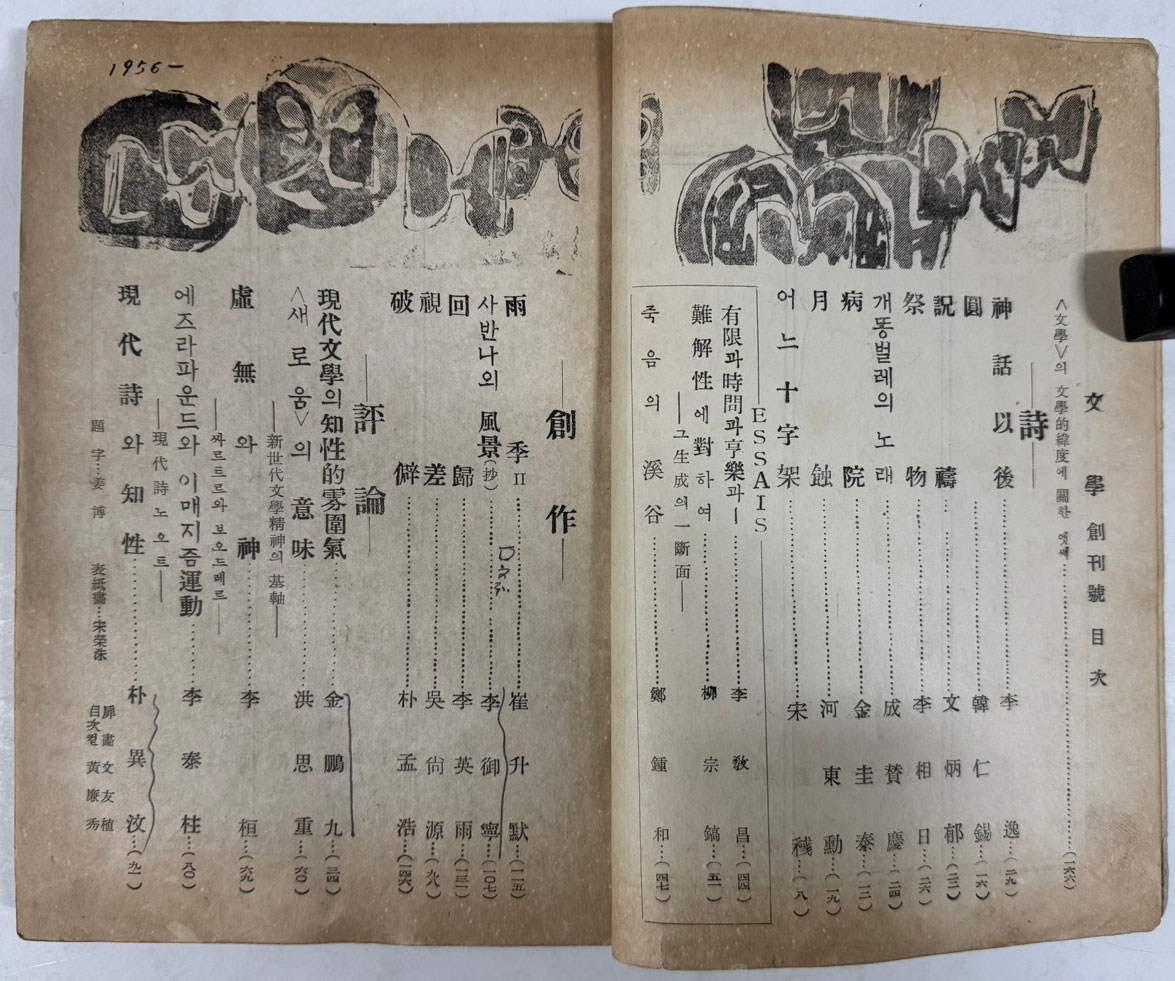 文學 創刊號 目次
<文學>의 文學的緯度에 關한 엣쎄……(一六六)
—詩—
神話以後……李 逸…(二九)
圓……韓仁錫…(一六)
祝禱……文炳郁…(二二)
祭物……李相日…(二六)
개똥벌레의 노래……成賛慶…(二四)
病院……金圭泰…(一二)
月蝕……河東勳…(一九)
어느十字架……宋 稶…(八)
—ESSAIS
有限과時間과享樂과—……李敎昌…(四四)
難解性에對하여……柳宗鎬…(五一)
—그生成의一斷面—
죽음의溪谷……鄭鍾和…(四七)
1956—
—創作—
雨季II……崔升默…(一一五)
사반나의 風景(抄)……李御寧…(一〇七)
回歸……李英雨…(一三一)
視差……吳尙源…(九八)
破僻……朴孟浩…(一四六)
—評論—
現代文學의知性的雰圍氣……金鵬九…(三四)
<새로움>의 意味……洪思重…(六〇)
—新世代文學精神의 基軸—
虛無와神……李 桓…(六九)
—싸르트르와 보오드레르—
에즈라파운드와 이매지즘運動……李泰柱…(八〇)
—現代詩노오트—
現代詩와知性……朴異汶…(九一)
題字…姜博 表紙畫…宋榮洙
扉畫 文友植
目次컽 黃廉秀